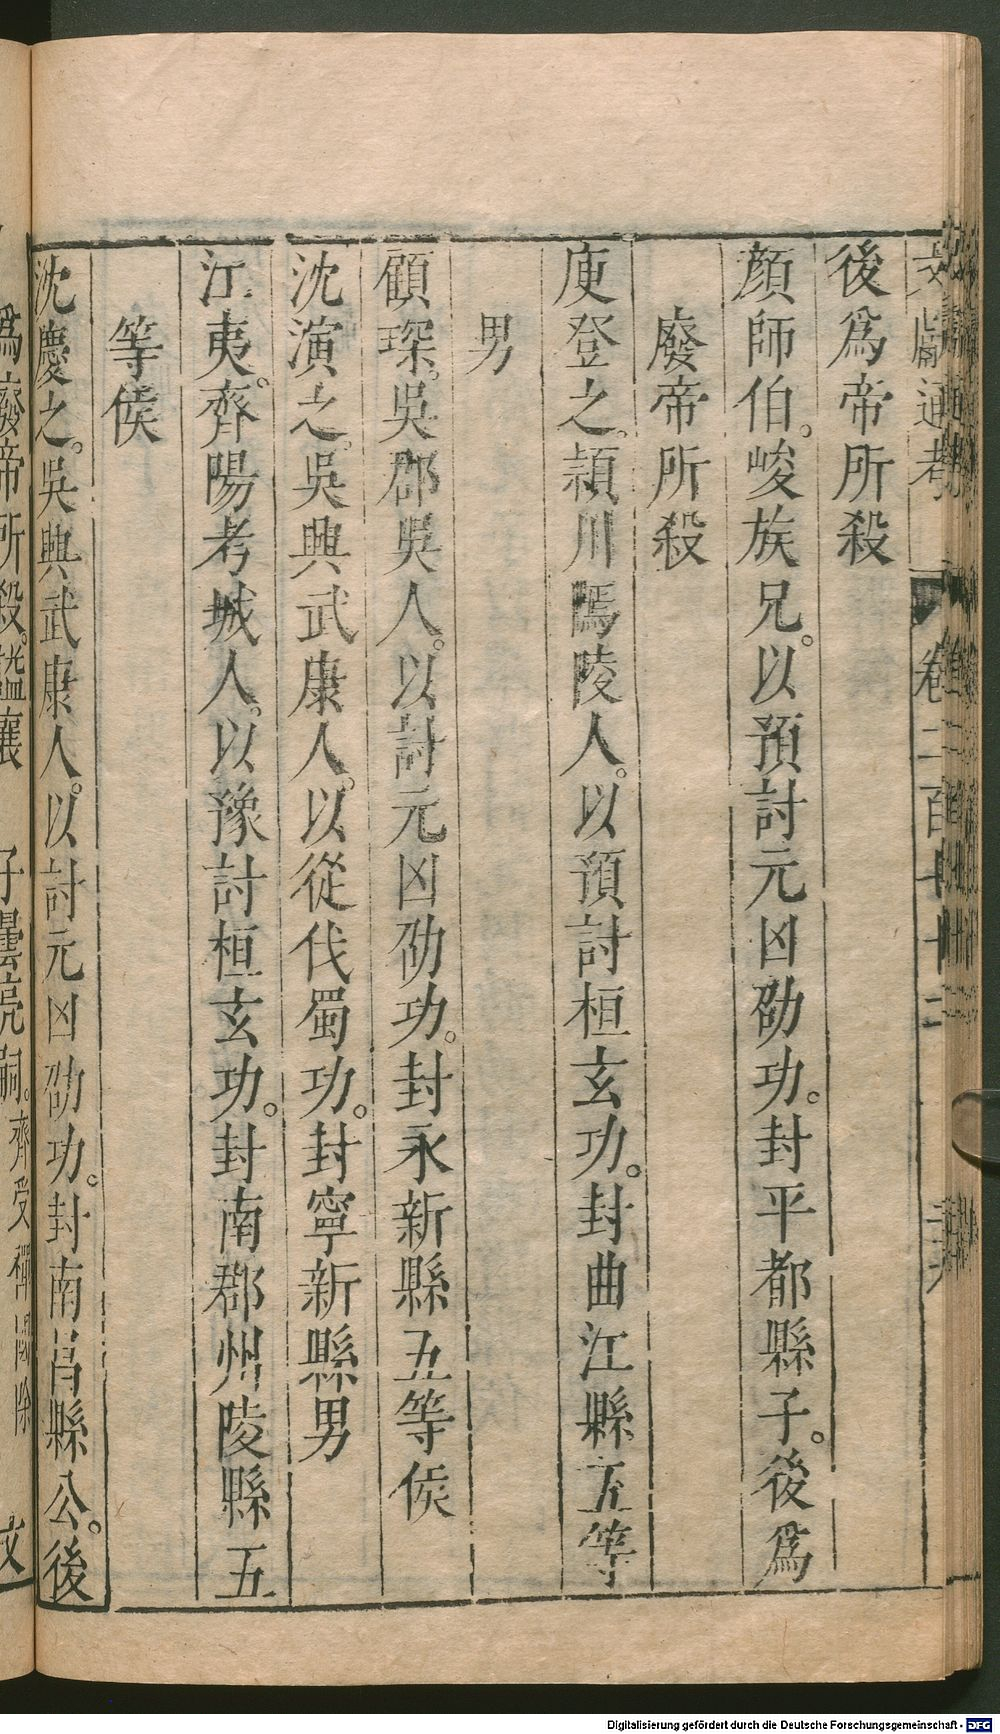 文獻通考 卷二百七十二
後爲帝所殺
顔師伯。峻族兄。以預討元凶劭功。封平都縣子。後爲
廢帝所殺
庾登之。潁川焉陵人。以預討桓玄功。封曲江縣五等
男
顧琛。吳郡吳人。以討元凶劭功。封永新縣五等侯
沈演之。吳興武康人。以從伐蜀功。封寧新縣男
江夷。齊陽考城人。以豫討桓玄功。封南郡州陵縣五
等侯
沈慶之。吳興武康人。以討元凶劭功。封南昌縣公。後
爲廢帝所殺。諡襄 子曇亮嗣。齊受禪國除
文
Digitalisierung gefördert durch die Deutsche Forschungsgemeinschaft - DFG